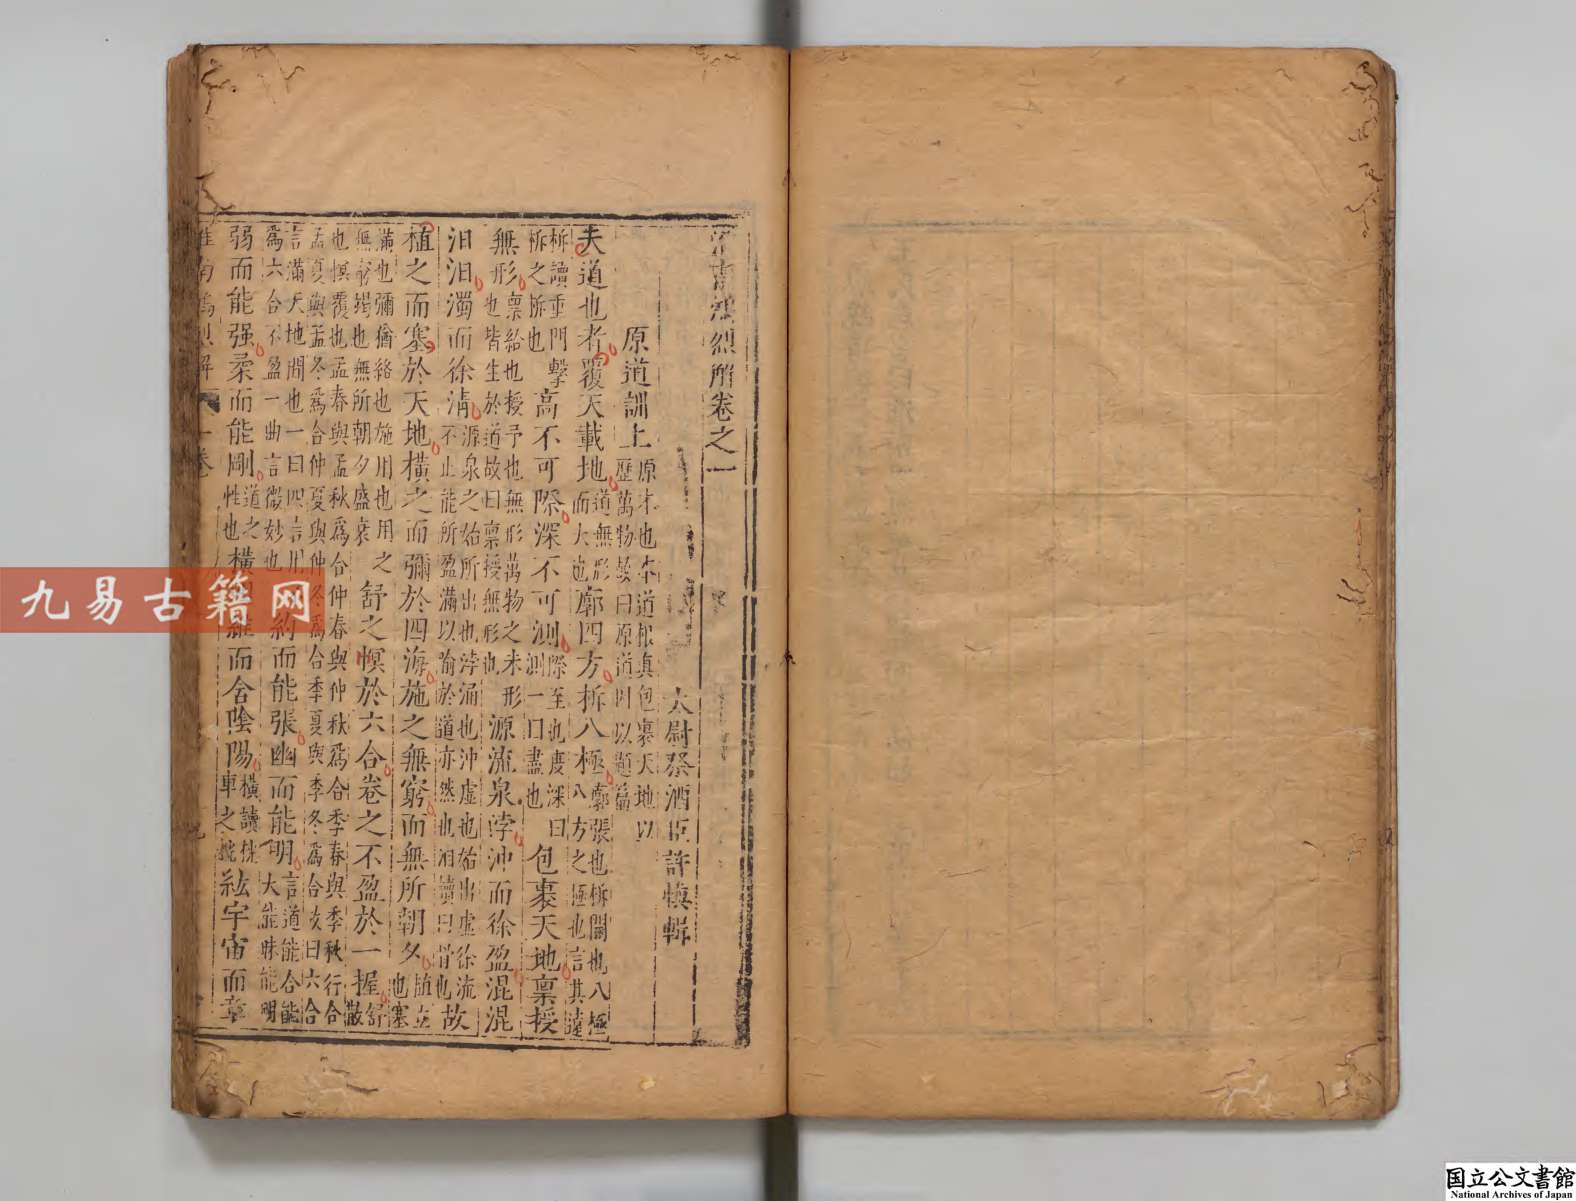 淮南鴻烈解卷之一
太尉祭酒臣許慎輯
原道訓上 原本也本道根真包裹天地以歷萬物故曰原道因以題篇
夫道也者覆天載地 道無形而大也 廓四方柝八極 廓張也柝開也八極八方之極也言其遠
柝讀重門擊柝之柝也 高不可際深不可測 際至也度深曰測一曰盡也 包裹天地稟授
無形 稟給也授予也無形萬物之未形也皆生於道故曰稟授無形也 源流泉浡沖而徐盈混混
汩汩濁而徐清 源泉之始所出也浡涌也沖虛也始出虛徐流不止能所盈滿以喻於道亦然也汩讀曰骨也 故
植之而塞於天地橫之而彌於四海施之無窮而無所朝夕 植立也塞
滿也彌猶絡也施用也用之無窮竭也無所朝夕盛衰 舒之幎於六合卷之不盈於一握 舒散
也幎覆也孟春與孟秋為合仲春與仲秋為合季春與季秋行合孟夏與孟冬為合仲夏與仲冬為合季夏與季冬為合故曰六合
言滿天地間也一曰四方上下為六合不盈一曲言微妙也 約而能張幽而能明 言道能合能大能昧能明
弱而能强柔而能剛 道之性也 橫四維而含陰陽 橫讀桄車之桄 紘宇宙而章
淮南鴻烈解 一卷
九易古籍网
国立公文書館
National Archives of Japan